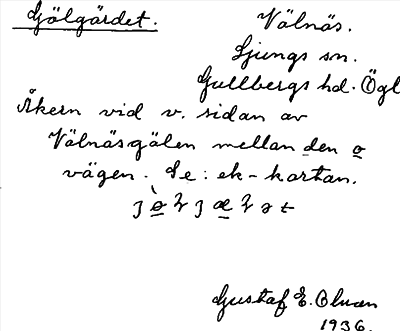 Gölgärdet.
Välnäs.
Ljungs sn.
Gullbergs hd. Ögl
Åkern vid v. sidan av
Välnäsgölen mellan den o
vägen. Se: ek-kartan.
Gustaf E.
1936.